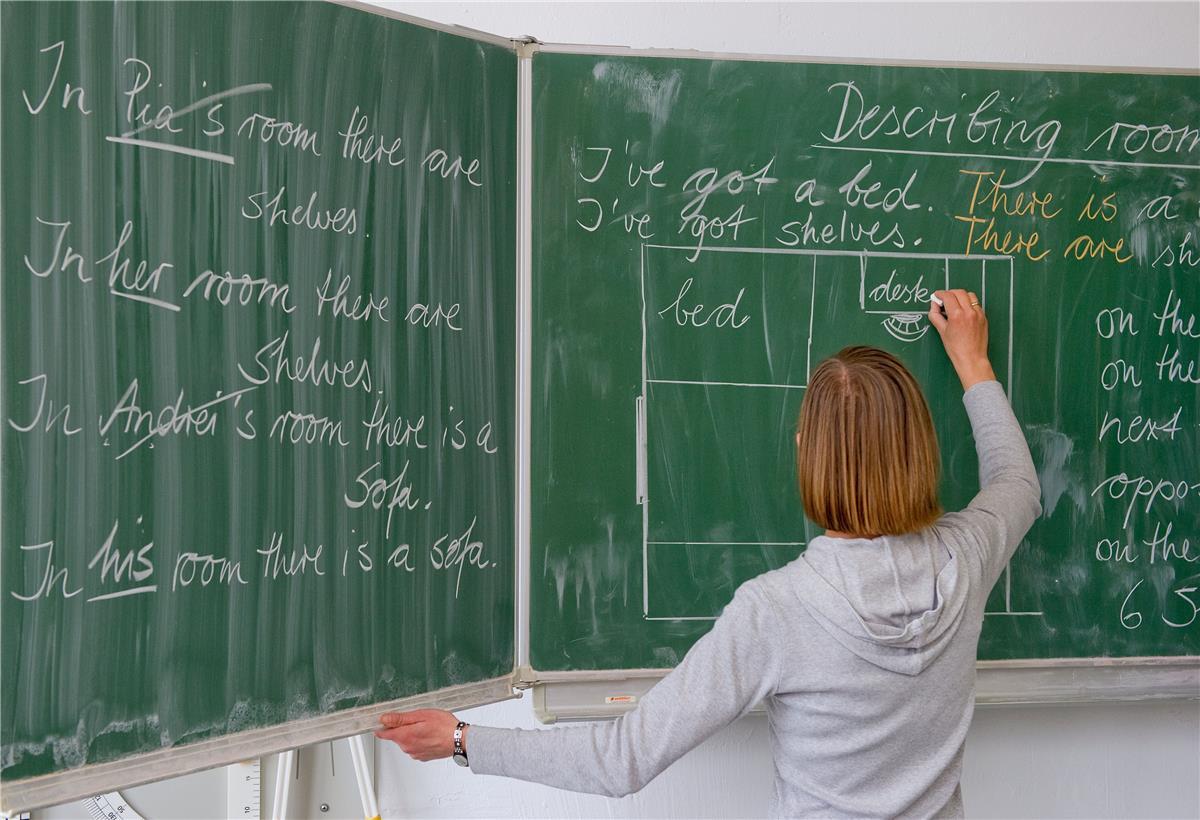 In Pia's room there are
shelves.
In her room there are
Shelves.
In Andrei's room there is a
Sofa.
In his room there is a sofa.
Describing room
I've got a bed. There is a
I've got shelves. There are sh
bed
desk
on the
on the
next
oppo
on the
6 5